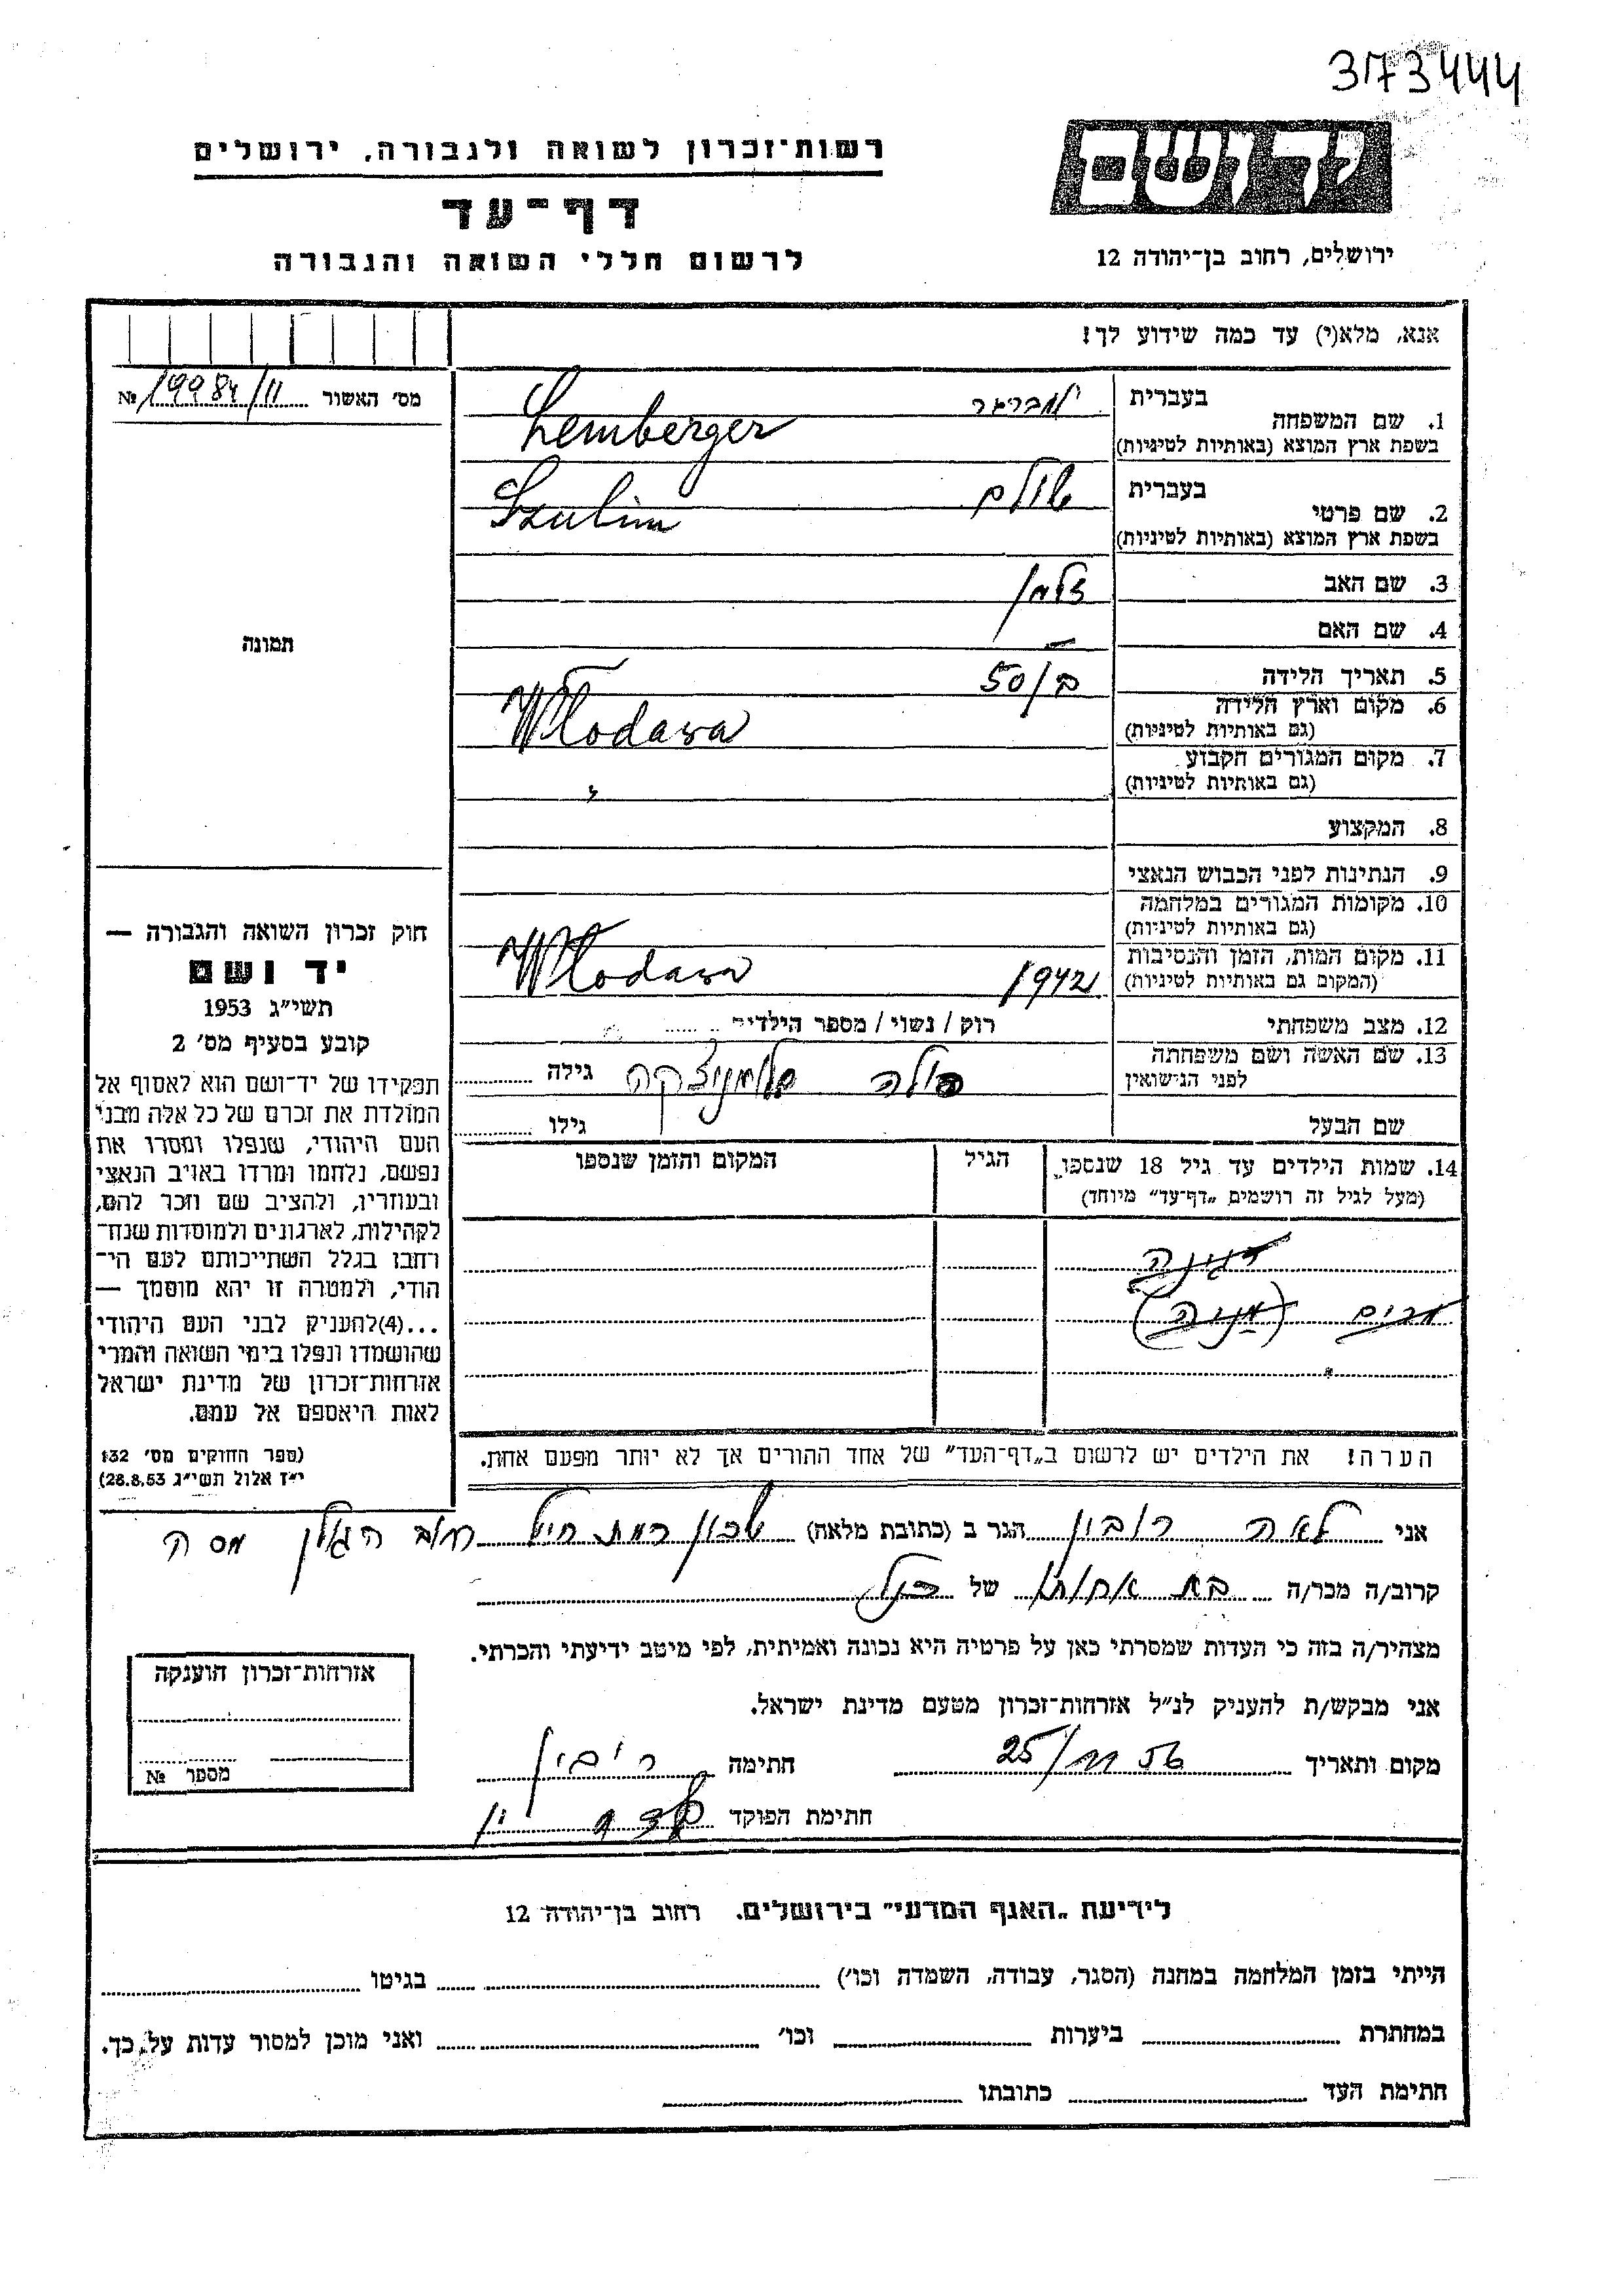 373444
רשות־זכרון לשואה ולגבורה, ירושלים
יד ושם
דף־עד
ירושלים, רחוב בן־יהודה 12
לרשום חללי השואה והגבורה
אנא, מלא(י) עד כמה שידוע לך!
מס׳ האשור № 19984/11
1. שם המשפחה בעברית למברגר
בשפת ארץ המוצא (באותיות לטיניות) Lemberger
2. שם פרטי בעברית שולם
בשפת ארץ המוצא (באותיות לטיניות) Szulim
3. שם האב זלמן
4. שם האם —
תמונה
5. תאריך הלידה ב/50
6. מקום וארץ הלידה Włodawa
(גם באותיות לטיניות)
7. מקום המגורים הקבוע "
(גם באותיות לטיניות)
8. המקצוע
9. הנתינות לפני הכבוש הנאצי
10. מקומות המגורים במלחמה
(גם באותיות לטיניות)
11. מקום המות, הזמן והנסיבות 1942 Włodawa
(המקום גם באותיות לטיניות)
12. מצב משפחתי רוק / נשוי / מספר הילדים
13. שם האשה ושם משפחתה גילה
לפני הנישואין
שם הבעל גילו
14. שמות הילדים עד גיל 18 שנספו הגיל המקום והזמן שנספו
(מעל לגיל זה רושמים „דף־עד״ מיוחד)
הערה! את הילדים יש לרשום ב„דף־העד״ של אחד ההורים אך לא יותר מפעם אחת.
חוק זכרון השואה והגבורה —
יד ושם
תשי״ג 1953
קובע בסעיף מס׳ 2
תפקידו של יד־ושם הוא לאסוף אל
המולדת את זכרם של כל אלה מבני
העם היהודי, שנפלו ומסרו את
נפשם, נלחמו ומרדו באויב הנאצי
ובעוזריו, ולהציב שם וזכר להם,
לקהילות, לארגונים ולמוסדות שנח־
רבו בגלל השתייכותם לעם הי־
הודי, ולמטרה זו יהא מוסמך —
...(4)להעניק לבני העם היהודי
שהושמדו ונפלו בימי השואה והמרי
אזרחות־זכרון של מדינת ישראל
לאות היאספם אל עמם.
(ספר החוקים מס׳ 132
י״ז אלול תשי״ג 28.8.53)
אני לאה רובין הגר ב (כתובת מלאה) שכון רמת חיל רחוב הגולן
קרוב/ה מכר/ה בת אחותו של הנ״ל
מצהיר/ה בזה כי העדות שמסרתי כאן על פרטיה היא נכונה ואמיתית, לפי מיטב ידיעתי והכרתי.
אני מבקש/ת להעניק לנ״ל אזרחות־זכרון מטעם מדינת ישראל.
מקום ותאריך 25/11 56 חתימה רובין
חתימת הפוקד
אזרחות־זכרון הוענקה
מספר №
לידיעת „האגף המדעי״ בירושלים. רחוב בן־יהודה 12
הייתי בזמן המלחמה במחנה (הסגר, עבודה, השמדה וכו׳) בגיטו
במחתרת ביערות וכו׳ ואני מוכן למסור עדות על כך.
חתימת העד כתובתו